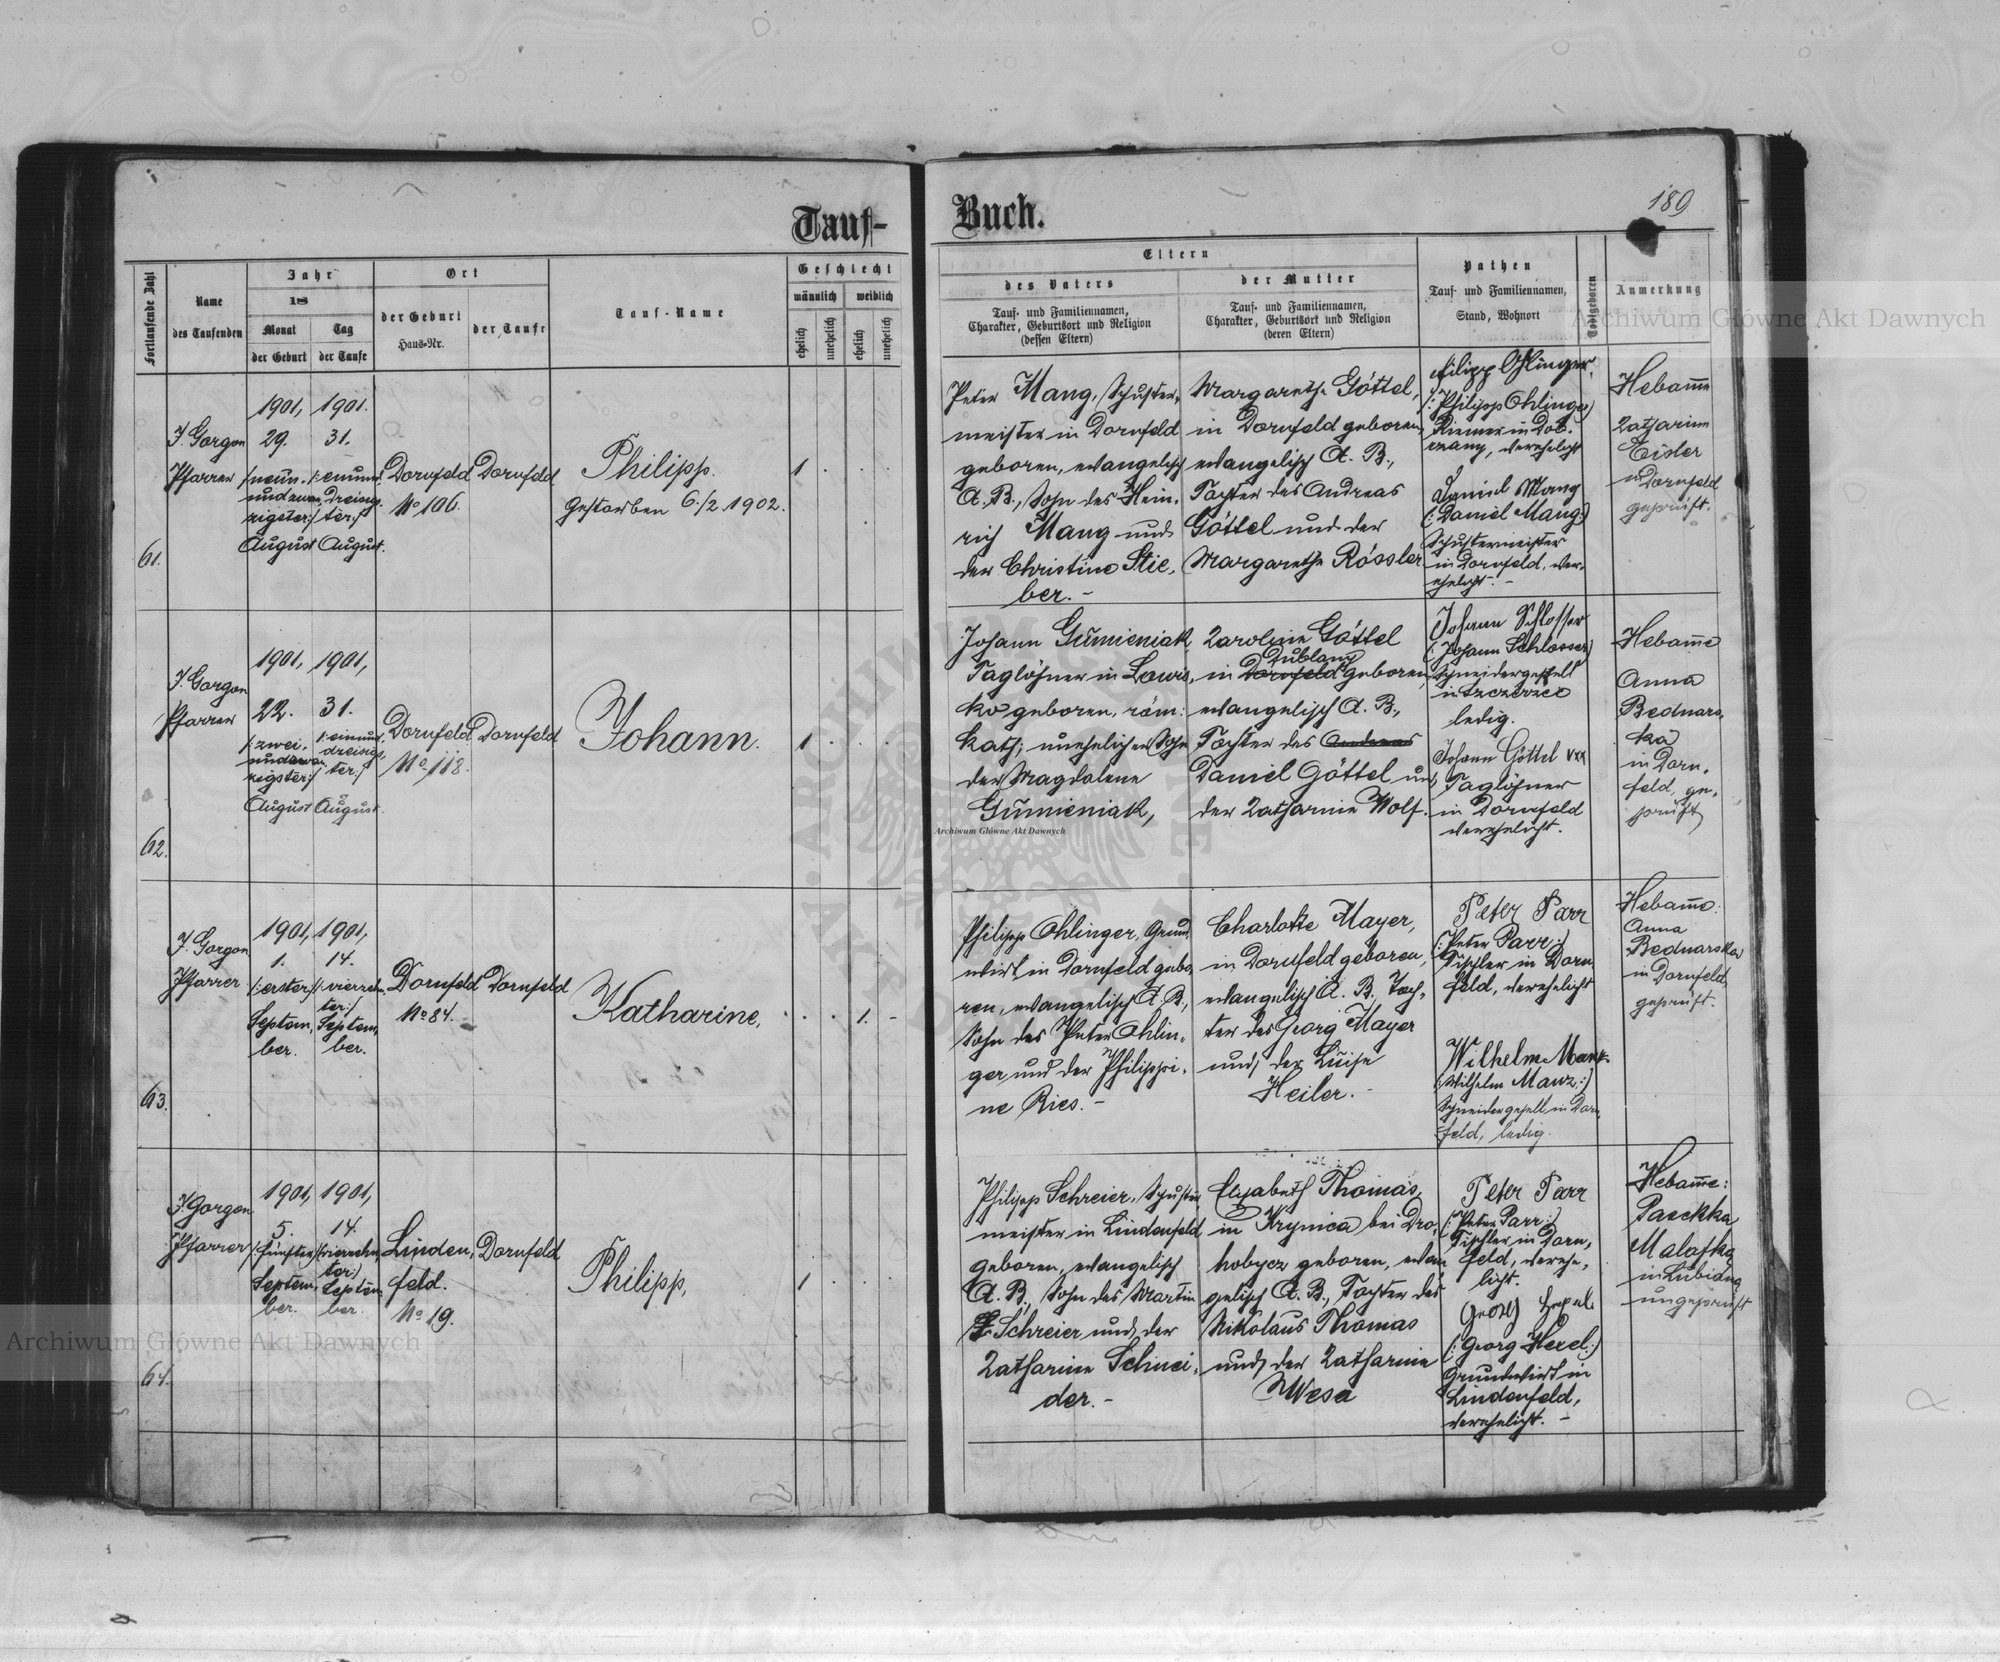 189
Tauf-Buch.
Fortlaufende Zahl
Name
des Taufenden
Jahr
18
Monat
der Geburt
Tag
der Taufe
Ort
der Geburt
Haus-Nr.
der Taufe
Tauf-Name
Geschlecht
männlich
weiblich
ehelich
unehelich
ehelich
unehelich
Eltern
des Vaters
Tauf- und Familiennamen,
Charakter, Geburtsort und Religion
(dessen Eltern)
der Mutter
Tauf- und Familiennamen,
Charakter, Geburtsort und Religion
(deren Eltern)
Pathen
Tauf- und Familiennamen,
Stand, Wohnort
Todtgeboren
Anmerkung
61.
J. Gorgon
Pfarrer
1901,
29.
/:neun-
undzwan,
zigster:/
August
1901.
31.
/:einund,
Dreisig,
ter:/
August.
Dornfeld
No 106.
Dornfeld
Philipp.
Gestorben 6./2 1902.
1
Peter Mang, Schuster,
meister in Dornfeld
geboren, evangelisch
A. B., Sohn des Hein,
rich Mang und
der Christine Stie,
ber. -
Margarethe Göttel,
in Dornfeld geboren,
evangelisch A. B.,
Tochter des Andreas
Göttel und der
Margarethe Rössler
Filipp Ohlinger.
/:Philipp Ohlinger/
Riemer in Dob,
rzany, verehelicht
Daniel Mang
(:Daniel Mang:)
Schustermeister
in Dornfeld, ver,
ehelicht. -
Hebamme
Katharine
Eisler
in Dornfeld
geprüft.
62.
J. Gorgon
Pfarrer
1901,
22.
/:zwei,
undzwan,
zigster:/
August
1901,
31.
/:einund,
dreisig,
ter:/
August.
Dornfeld
No 118.
Dornfeld
Johann.
1
Johann Gumieniak
Taglöhner in Lowis,
ko geboren, röm:
kath; unehelicher Sohn
der Magdalene
Gumieniak,
Karoline Göttel
Dublany
in Dornfeld geboren,
evangelisch A. B.,
Tochter des Andreas
Daniel Göttel und,
der Katharine Wolf.
Johann Schlosser
(:Johann Schlosser)
Schneidergesell
in Szczerzec
ledig.
Johann Göttel xxx
Taglöhner
in Dornfeld
verehelicht.
Hebamme
Anna
Bednars,
ka
in Dorn,
feld, ge,
prüft
63.
J. Gorgon
Pfarrer
1901,
1.
/:erster:/
Septem,
ber.
1901,
14.
/:vierzehn,
ter:/
Septem,
ber.
Dornfeld
No 84.
Dornfeld
Katharine,
1.
Philipp Ohlinger, Grund,
wirt in Dornfeld gebo,
ren, evangelisch A. B.,
Sohn des Peter Ohlin,
ger und der Philippi,
ne Ries. -
Charlotte Mayer,
in Dornfeld geboren,
evangelisch A. B., Toch,
ter des Georg Mayer
und der Luise
Heiler. -
Peter Parr
(:Peter Parr:)
Tischler in Dorn,
feld, verehelicht
Wilhelm Manz
(:Wilhelm Manz:)
Schneidergesell in Dorn,
feld, ledig.
Hebamme:
Anna
Bednarska
in Dornfeld,
geprüft.
64.
J. Gorgon
Pfarrer
1901,
5.
/:fünfter/
Septem,
ber.
1901,
14.
/:vierzehn,
ter:/
Septem,
ber.
Linden,
feld.
No 19.
Dornfeld
Philipp,
1
Philipp Schreier, Schuster,
meister in Lindenfeld
geboren, evangelisch
A. B., Sohn des Martin
Schreier und der
Katharine Schnei,
der. -
Elisabeth Thomas,
in Krynica bei Dro,
hobycz geboren, evan
gelisch A. B., Tochter des
Nikolaus Thomas
und der Katharine
Wesa
Peter Parr
(:Peter Parr:)
Tischler in Dorn,
feld, verehe,
licht.
Georg
(:Georg Hexel:)
Grundwirt in
Lindenfeld,
verehelicht. -
Hebamme:
Paschka
Malafka
in Lubiana
ungeprüft
Archiwum Główne Akt Dawnych
Archiwum Główne Akt Dawnych
Archiwum Główne Akt Dawnych